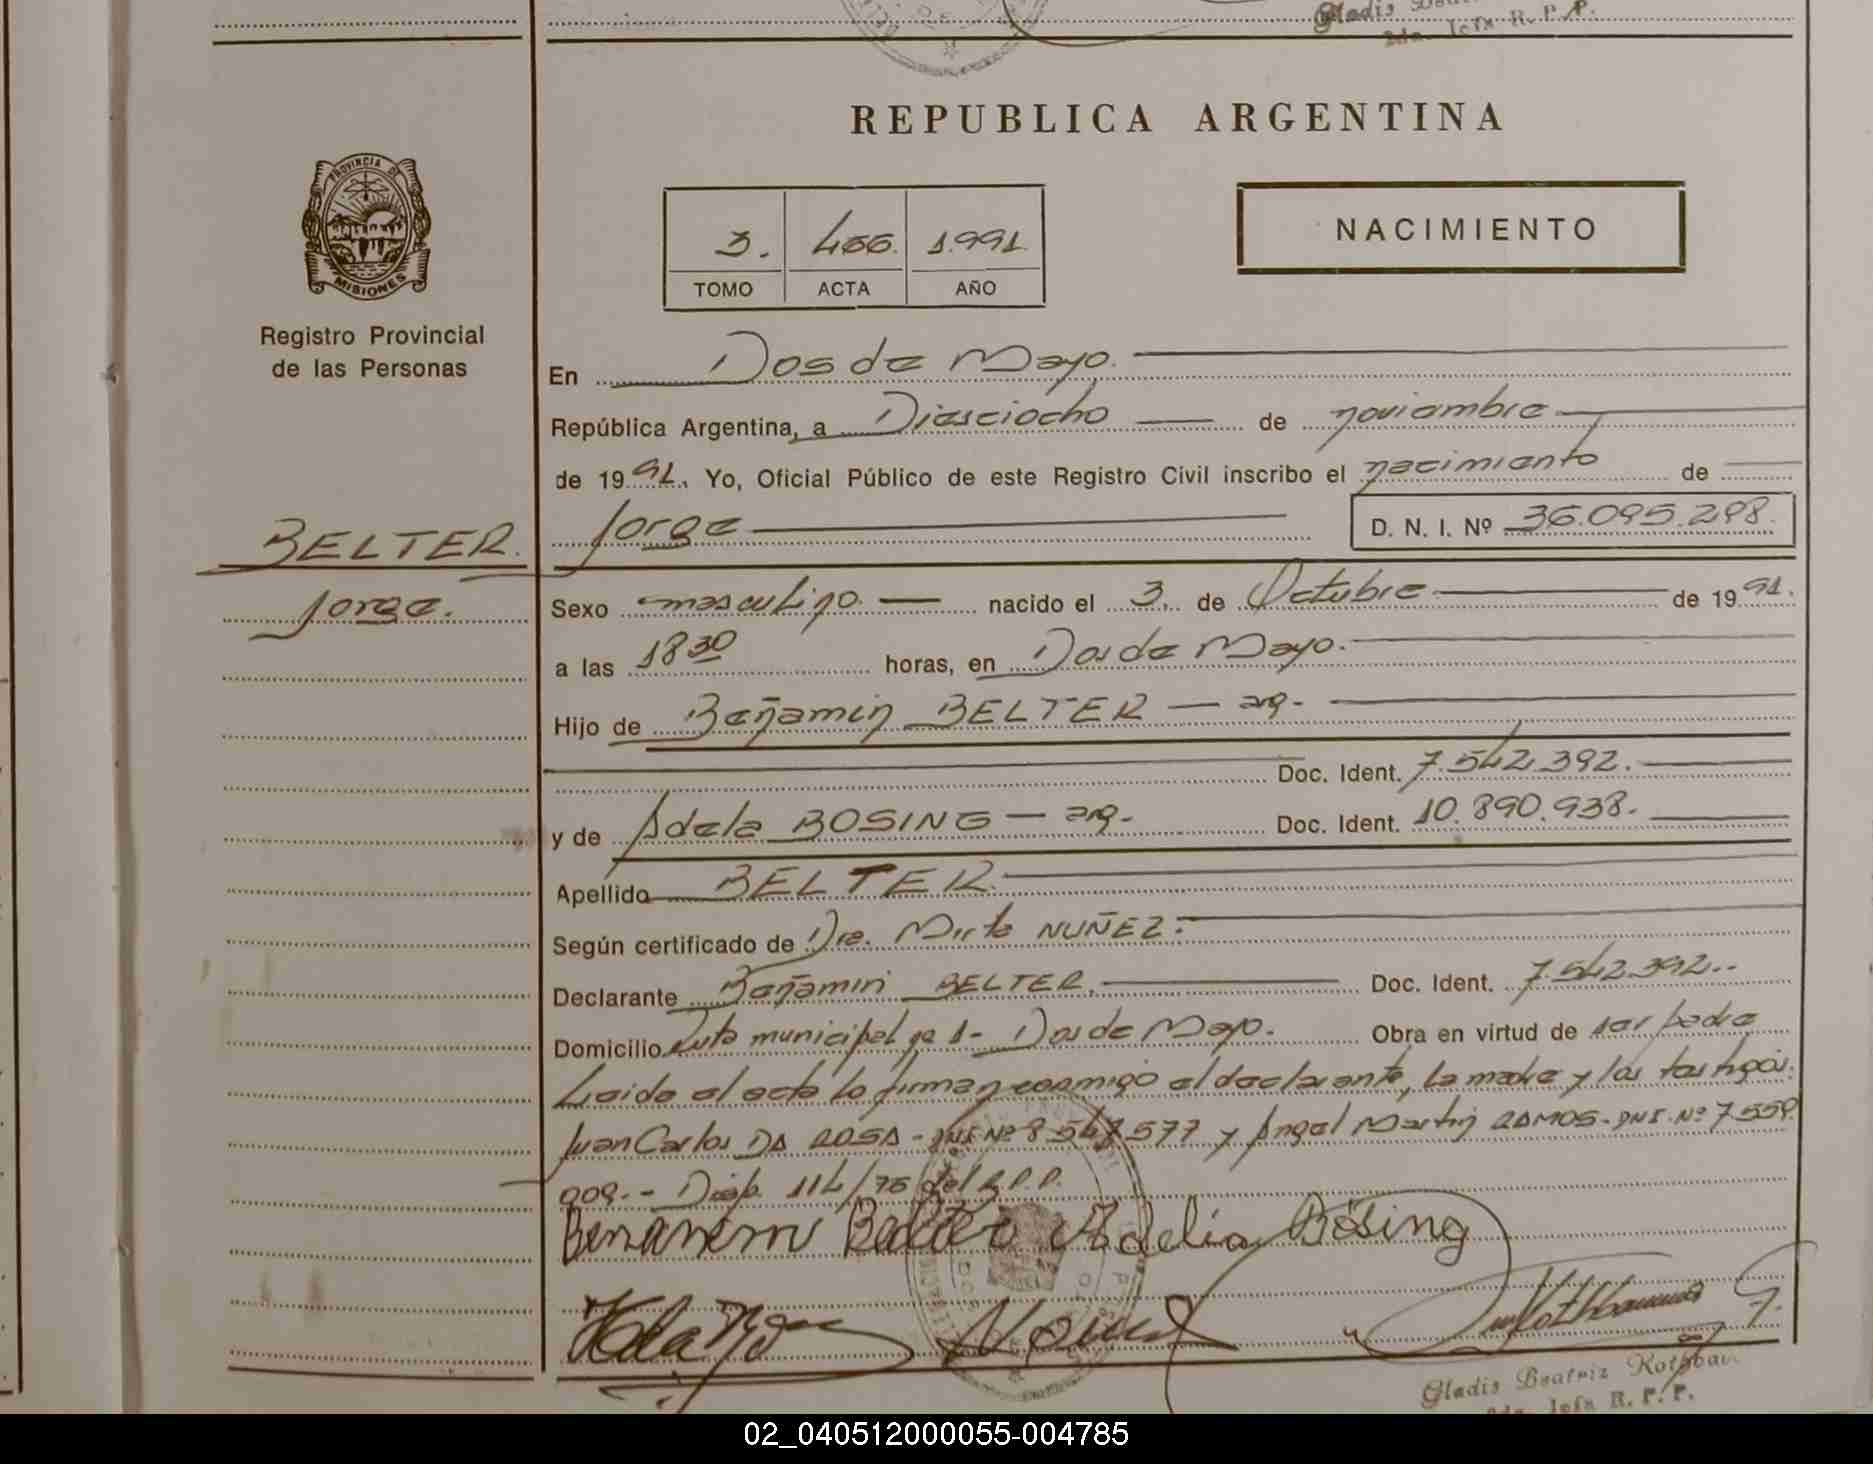 Gladis
2da. Jefa R. P. P.
REPUBLICA ARGENTINA
PROVINCIA DE
MISIONES
3. 466. 1.991
TOMO ACTA AÑO
NACIMIENTO
Registro Provincial
de las Personas
En Dos de Mayo.
República Argentina, a Diesciocho de noviembre
de 1991. Yo, Oficial Público de este Registro Civil inscribo el nacimiento de
BELTER. Jorge D. N. I. Nº 36.095.298.
Jorge. Sexo masculino. nacido el 3. de Octubre de 1991.
a las 18 30 horas, en Dos de Mayo.
Hijo de Beñamin BELTER — arg.
Doc. Ident. 7.542.392.
y de Adela BOSING — arg. Doc. Ident. 10.890.938.
Apellido BELTER.
Según certificado de Dra. Mirta NUÑEZ.
Declarante Beñamin BELTER. Doc. Ident. 7.542.392.
Domicilio Ruta municipal nº 1- Dos de Mayo. Obra en virtud de ser padre
Leido el acta lo firman conmigo el declarante, la madre y los testigos:
Juan Carlos DA ROSA - DNI Nº 8.547.577 y Angel Martin RAMOS - DNI. Nº 7.559.
909.- Disp. 114/76 del R.P.P.
Adelia Bösing
Gladis Beatriz
2da. Jefa R. P. P.
02_040512000055-004785